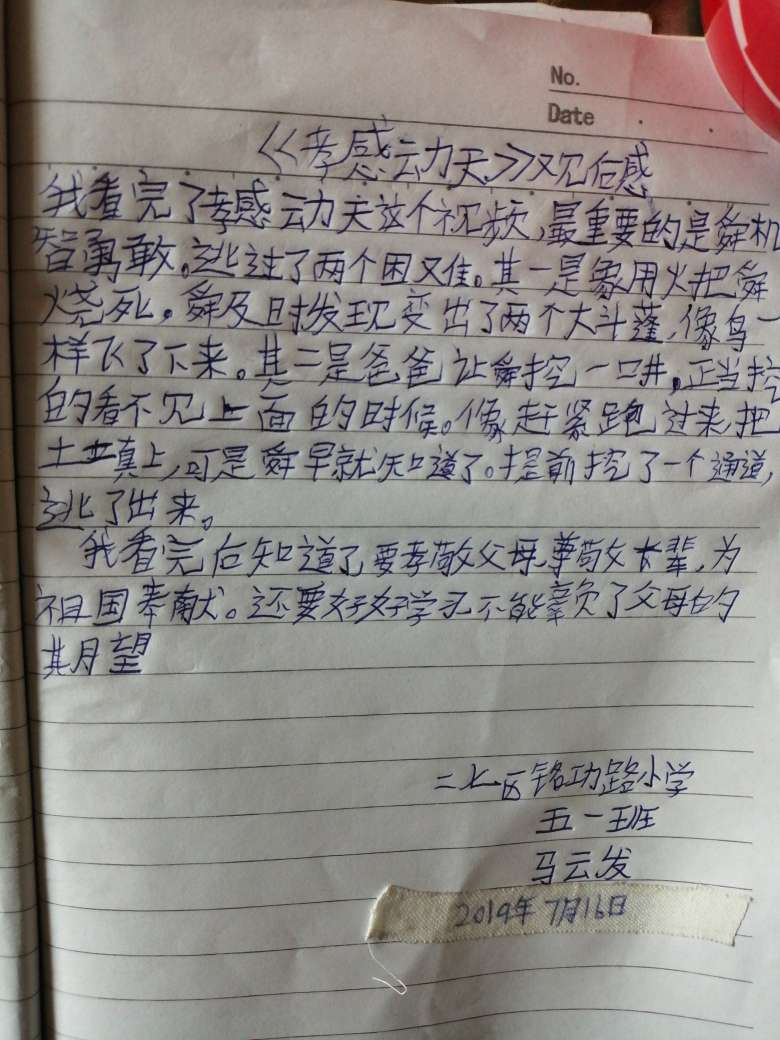 No.
Date
《孝感动天》观后感
我看完了孝感动天这个视频,最重要的是舜机
智勇敢。逃过了两个困难。其一是象用火把舜
烧死。舜及时发现变出了两个大斗蓬,像鸟一
样飞了下来。其二是爸爸让舜挖一口井,正当挖
的看不见上面的时候。像赶紧跑过来,把
土填上,可是舜早就知道了。提前挖了一个通道,
逃了出来。
我看完后知道了要孝敬父母,尊敬长辈,为
祖国奉献。还要好好学习不能辜负了父母的
期望
二七区铭功路小学
五一班
马云发
2019年7月16日